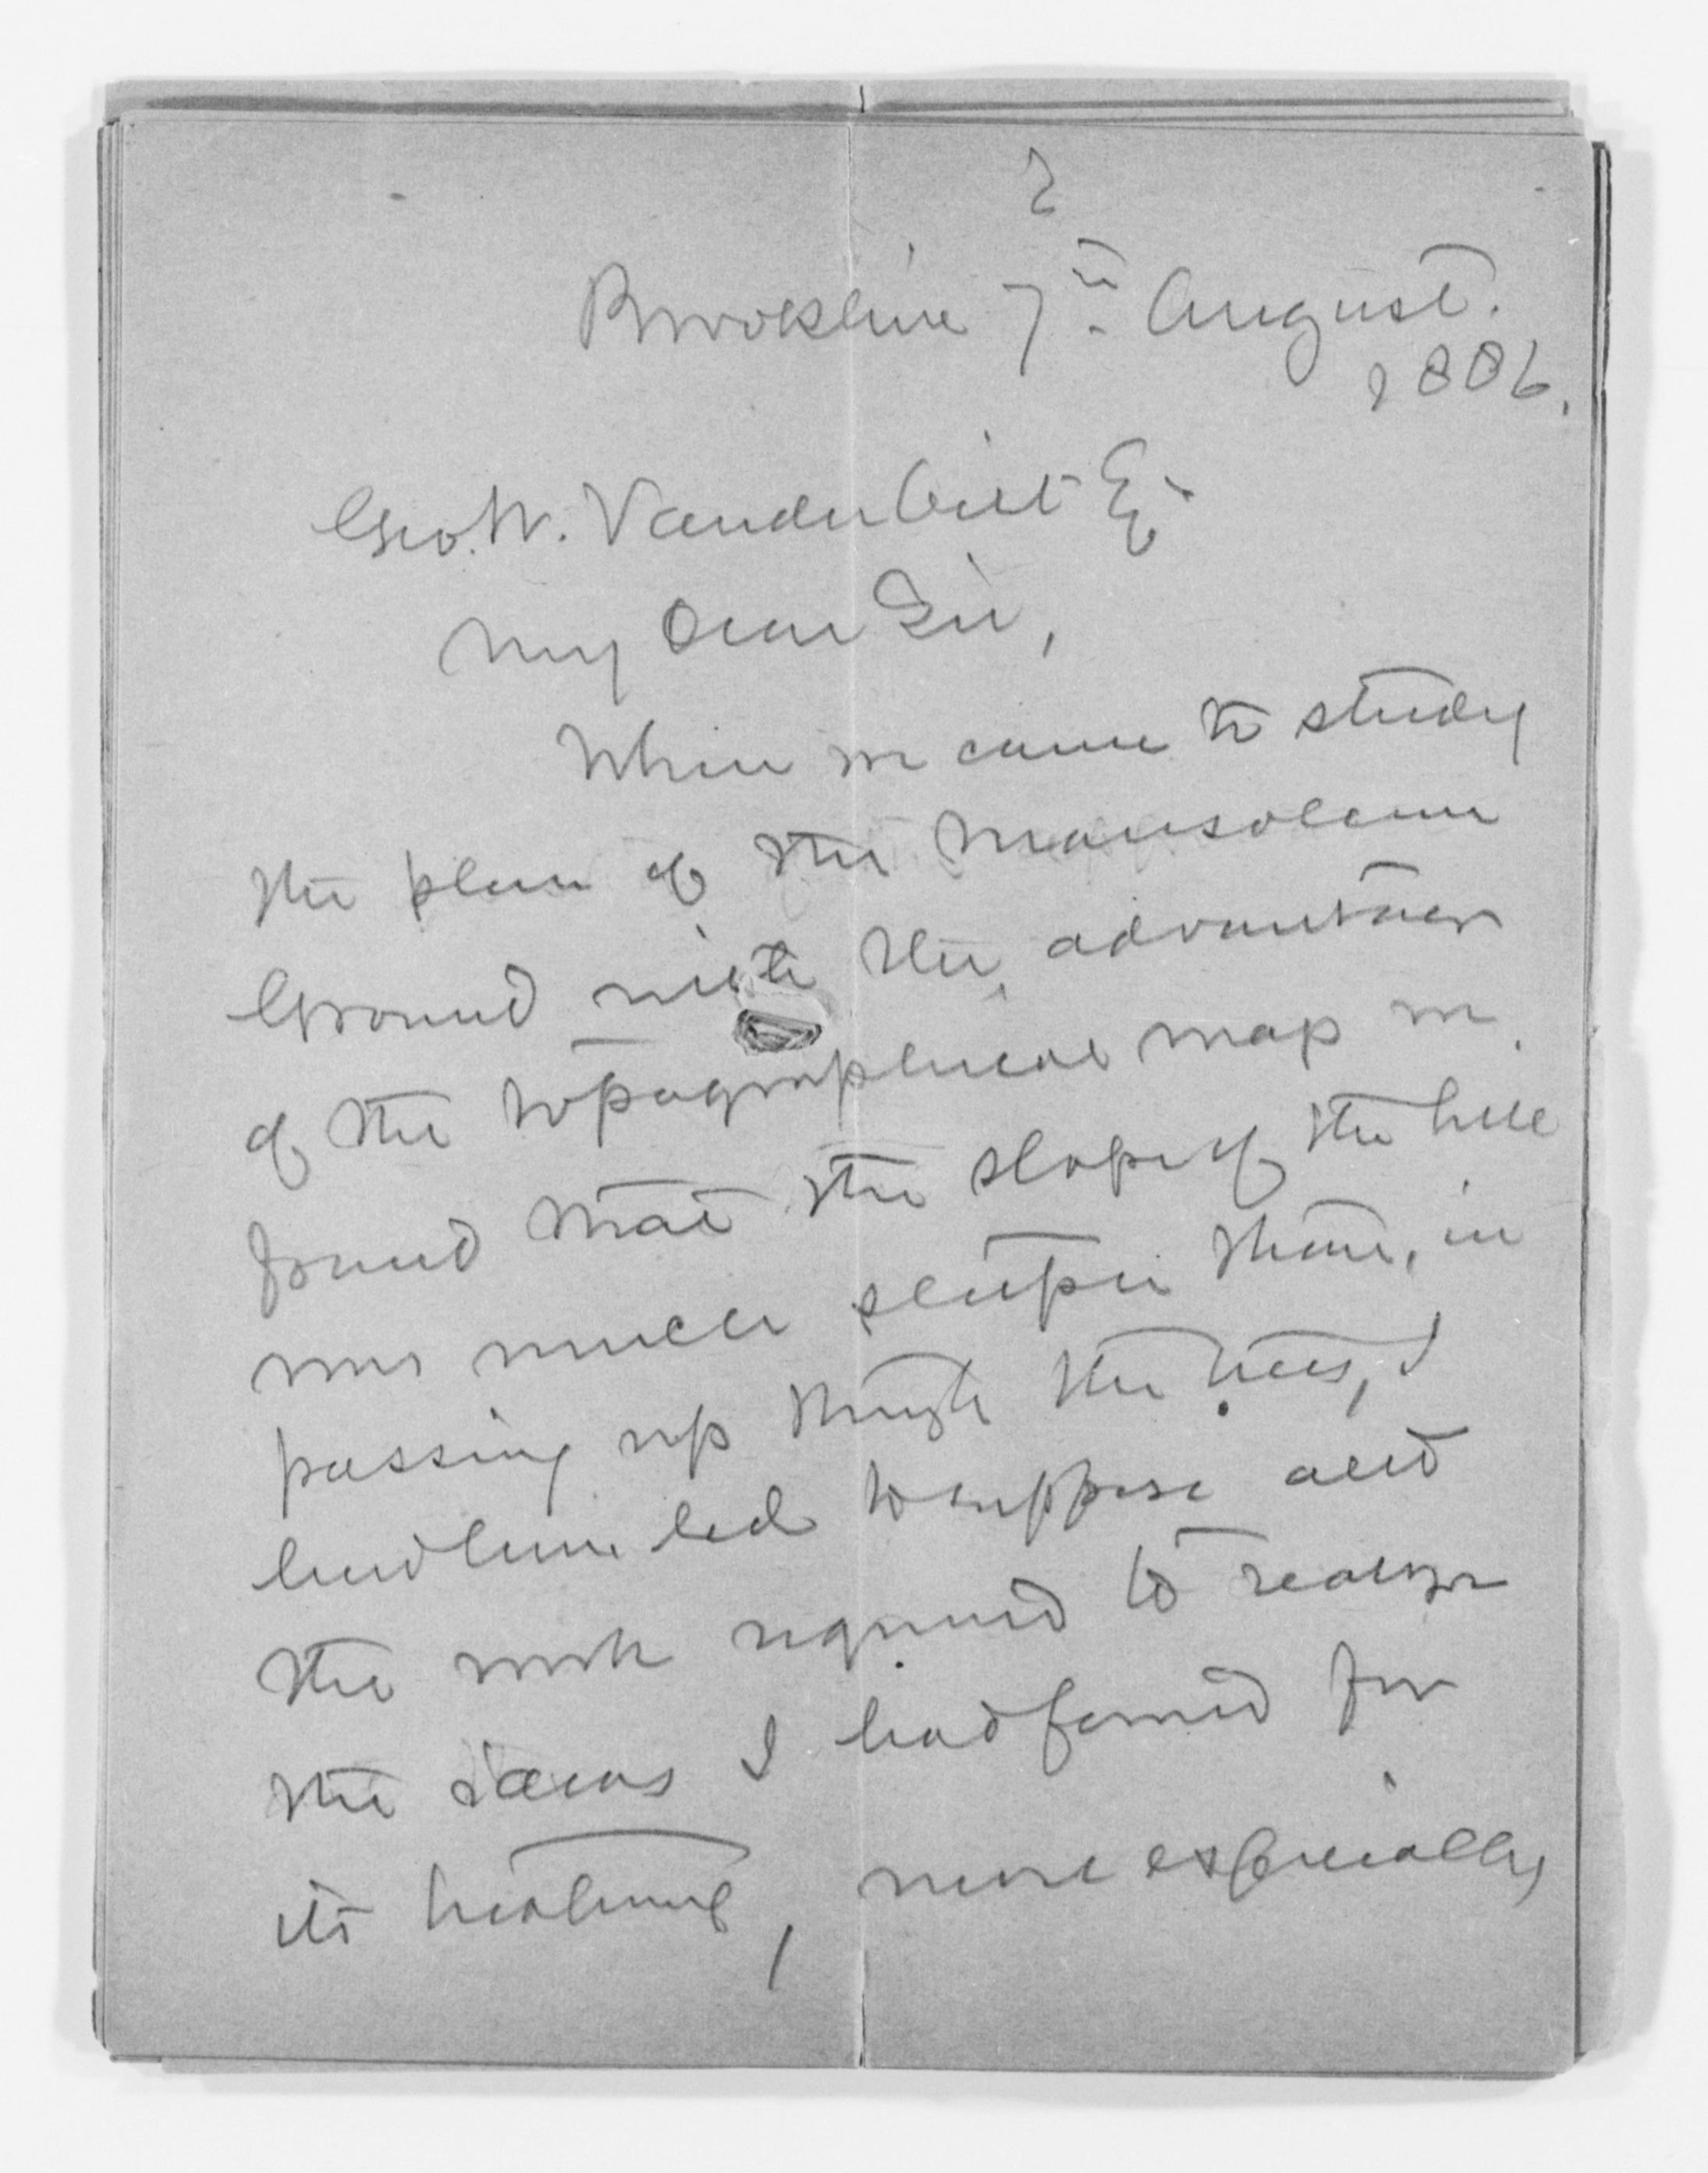 2
Brookline 7th August.
1886.
Geo. W. Vanderbilt Eq.
My Dear Sir,
When we came to study
the plan of the Mausoleum
Ground with the advantage
of the topographical map we
found that the slope of the hill
was much steeper than, in
passing up through the trees, I
had been led to suppose and
the work required to realize
the ideas I had formed for
its treatment, more especially